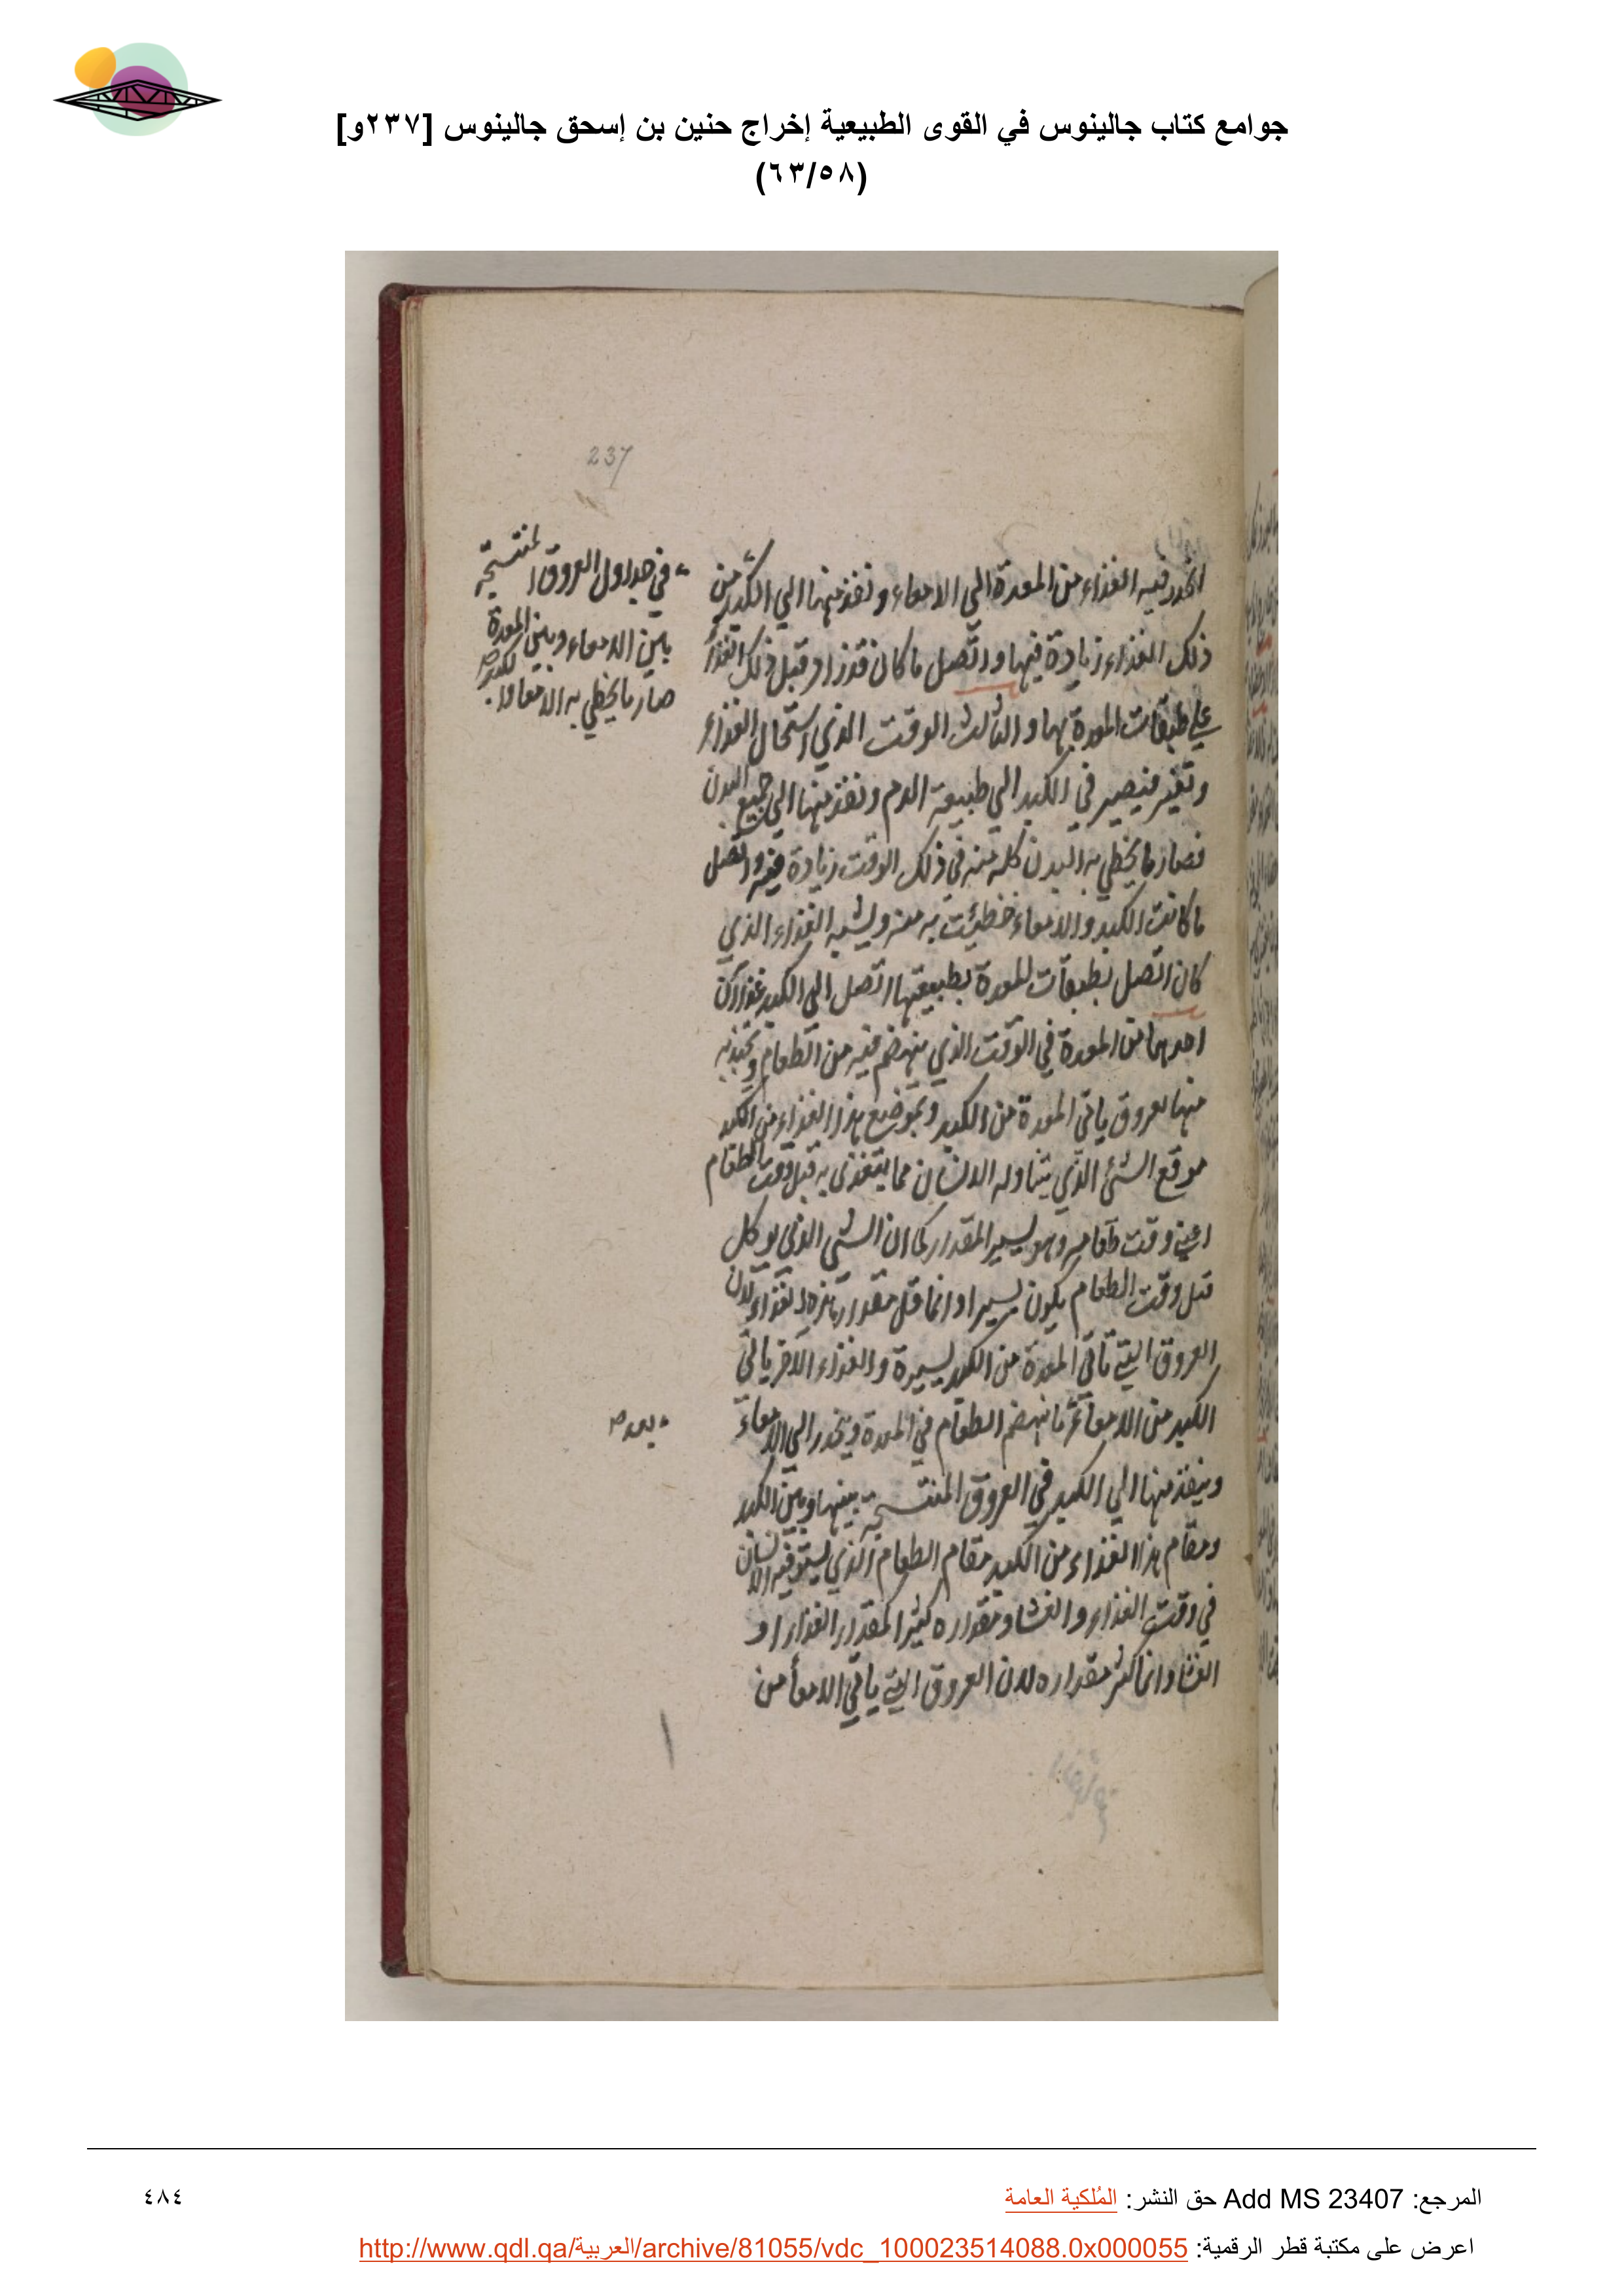 جوامع كتاب جالينوس في القوى الطبيعية إخراج حنين بن إسحق جالينوس [٢٣٧و]
(٦٣/٥٨)
237
انحدر فيه الغذاء من المعدة الي الامعاء ونفذ منها الي الكبد من
ذلك الغذاء زيادة فيها واتصل ما كان قد زاد قبل ذلك الغذاء
علي طبقات المعدة بها والثالث الوقت الذي استحال الغذاء
وتغير فيصير في الكبد الي طبيعة الدم ونفذ منها الي جميع البدن
فصار ما يحظي به البدن كله منه في ذلك الوقت زيادة فيه واتصل
ما كانت الكبد والامعاء حظيت به منه ويشبه الغذاء الذي
كان اتصل بطبقات المعدة بطبيعتها اتصل الي الكبد غذاآن
احدهما من المعدة في الوقت الذي ينهضم فيه من الطعام وتجذبه
منها عروق ياتي المعدة من الكبد وموضع هذا الغذاء من الكبد
موقع الشئ الذي يتناوله الانسان مما يتغذي به قبل وقت الطعام
اعني وقت طعامه وهو يسير المقدار كما ان الشي الذي يوكل
قبل وقت الطعام يكون يسيرا وانما قل مقدار هذه الغذاء لان
العروق التي تاتي المعدة من الكبد يسيرة والغذاء الاخر ياتي
الكبد من الامعاء ما ينهضم الطعام في المعدة وينحدر الي الامعاء
وينفذ منها الي الكبد في العروق المنتسجة بينها وبين الكبد
ومقام هذا الغذاء من الكبد مقام الطعام الذي يستوفيه الانسان
في وقت الغذاء والعشا ومقداره كثير كمقدار الغذاء او
العشا وانما كثر مقداره لان العروق التي ياتي الامعأ من
في جداول العروق المنتسجة
بين الامعاء وبين المعدة
صار ما يحظي به الامعاء
بعد
المرجع: Add MS 23407 حق النشر: المُلكية العامة
٤٨٤
اعرض على مكتبة قطر الرقمية: http://www.qdl.qa/العربية/archive/81055/vdc_100023514088.0x000055